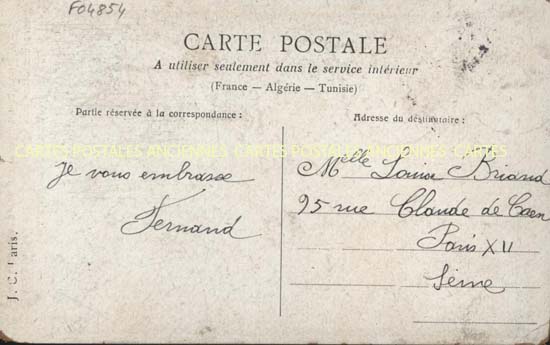 F04854
CARTE POSTALE
A utiliser seulement dans le service intérieur
(France — Algérie — Tunisie)
Partie réservée à la correspondance :
Adresse du destinataire :
CARTES POSTALES ANCIENNES CARTES POSTALES ANCIENNES CARTES
Je vous embrasse
Fernand
Melle Louise Briand
95 rue Claude de Caen
Paris XII
Seine
J. C. Paris.